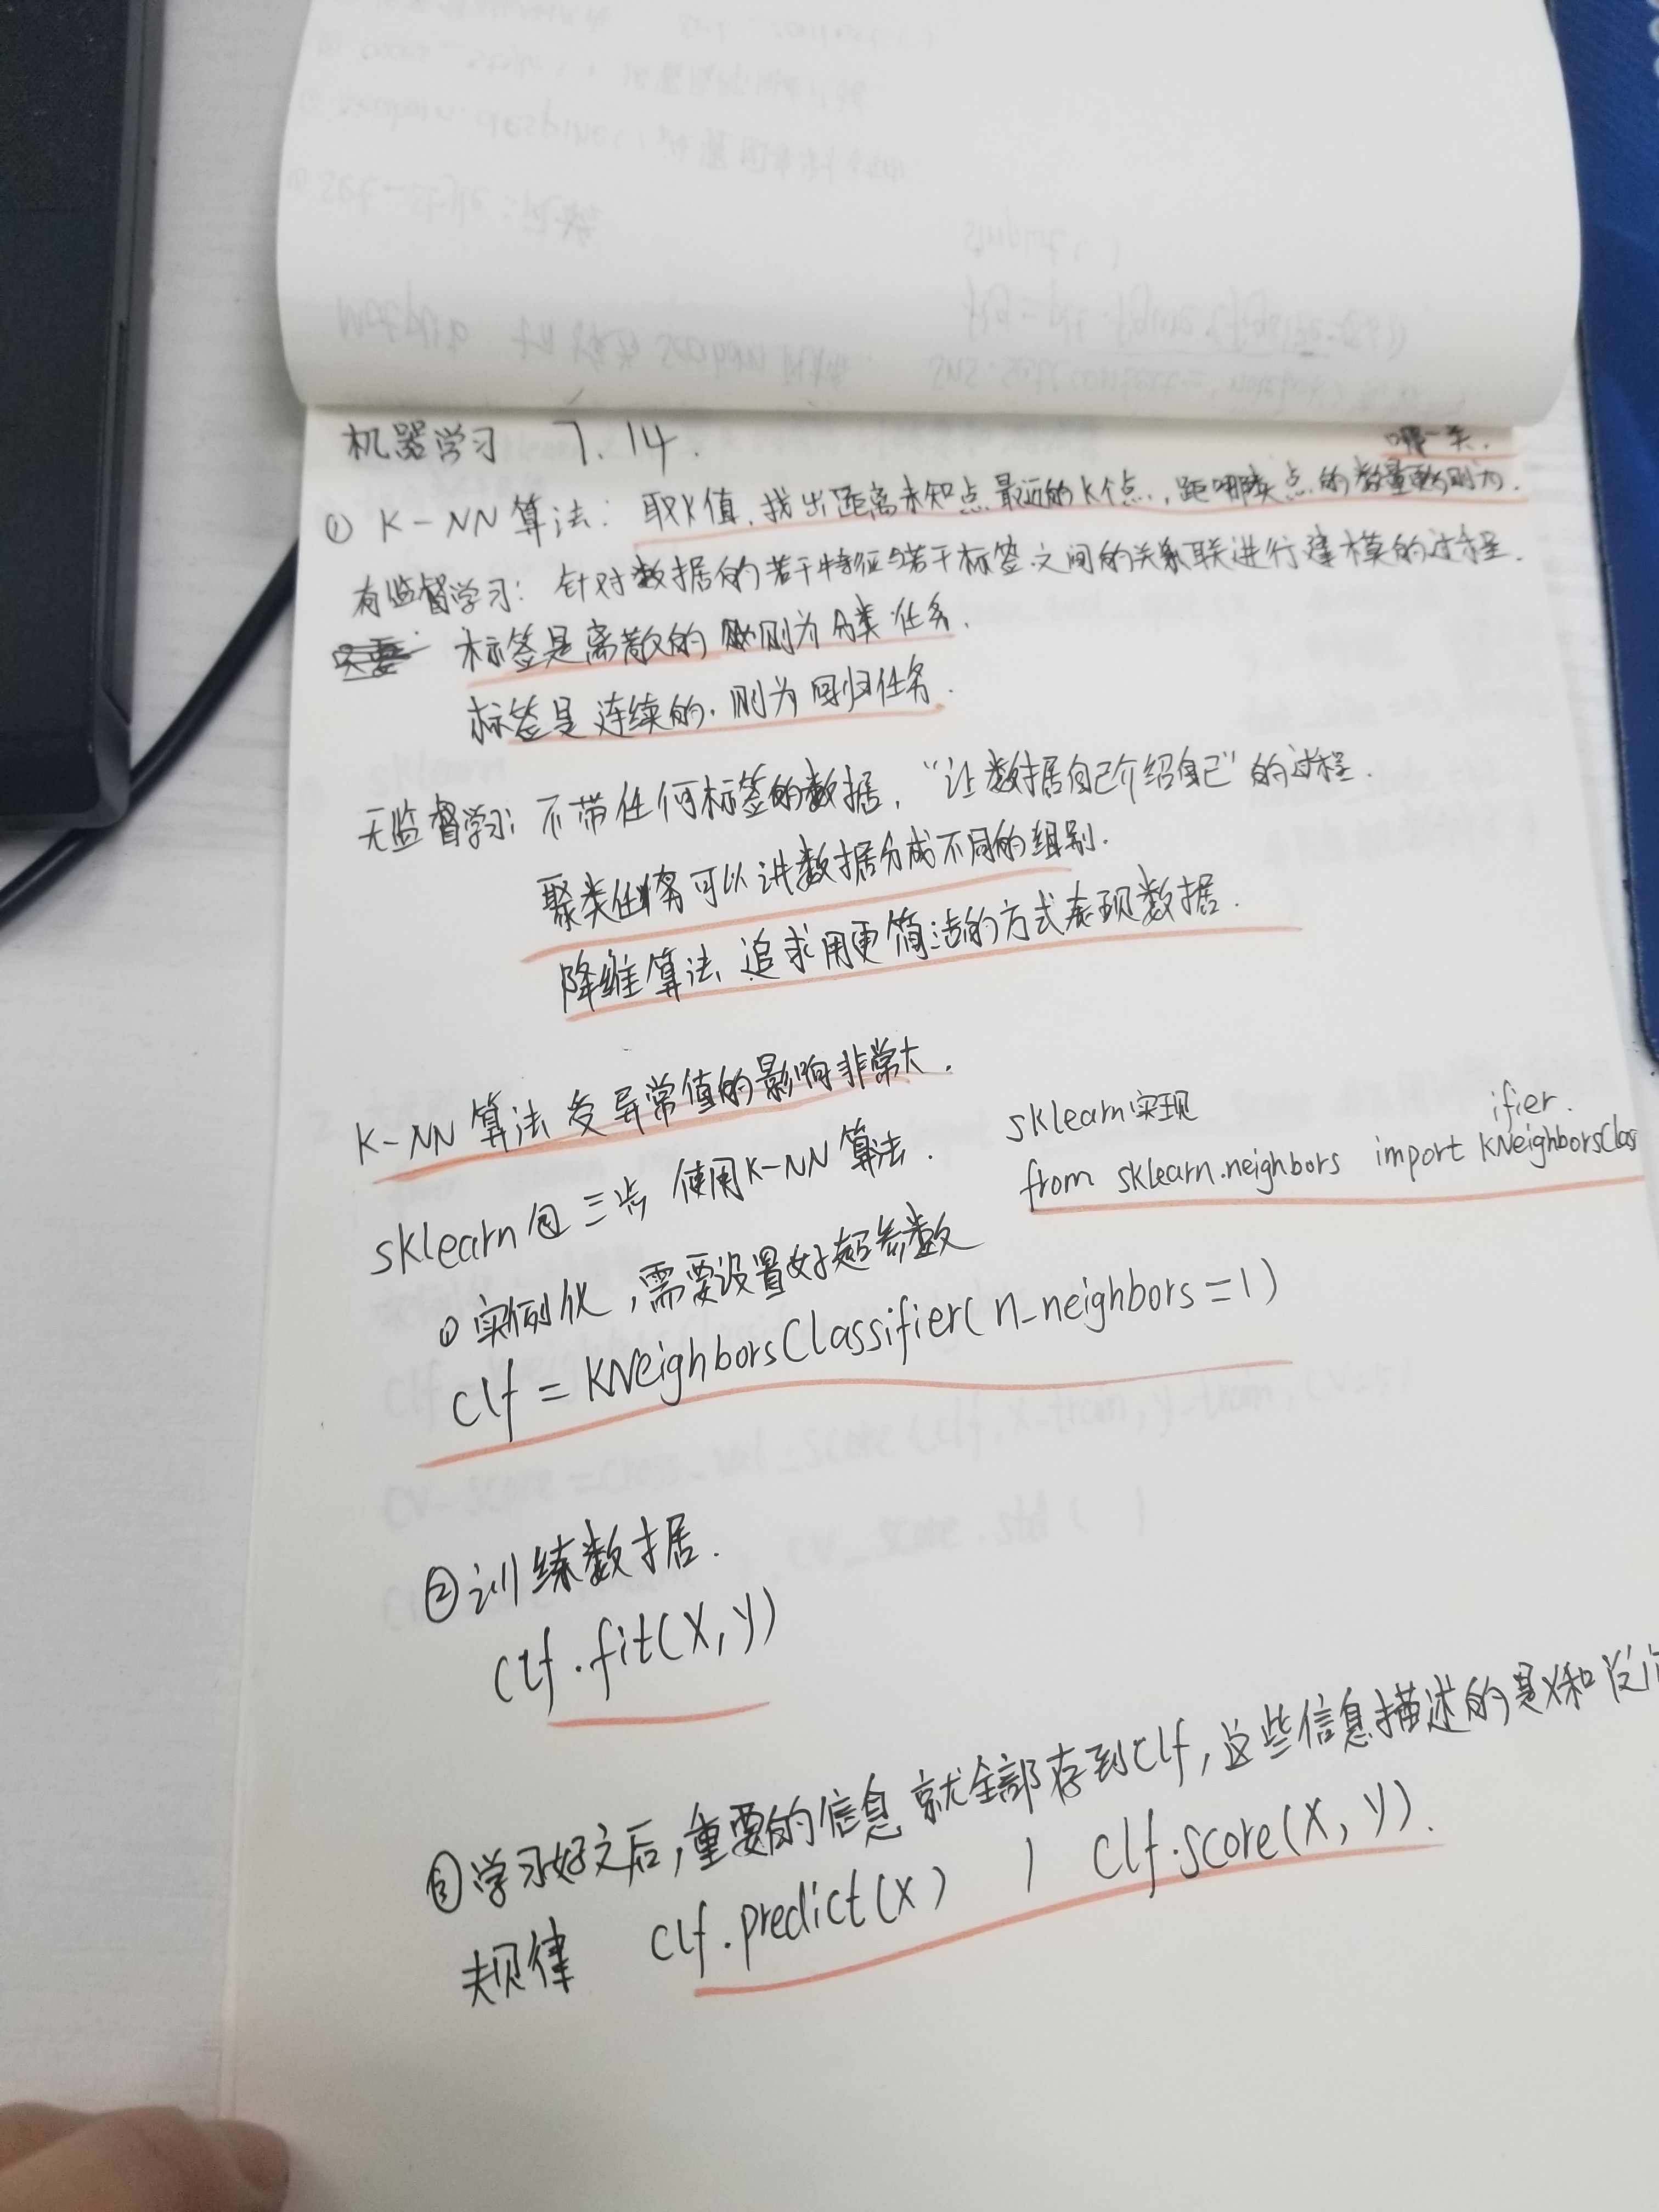 机器学习 7.14.
哪一类.
① K-NN算法: 取K值,找出距离未知点最近的K个点,距哪类点的数量更多则为.
有监督学习: 针对数据的若干特征与若干标签之间的关系联进行建模的过程.
标签是离散的 则为分类任务.
标签是连续的,则为回归任务.
无监督学习: 不带任何标签的数据,“让数据自己介绍自己”的过程.
聚类任务可以讲数据分成不同的组别.
降维算法、追求用更简洁的方式表现数据.
K-NN算法受异常值的影响非常大.
sklearn包三步使用K-NN算法.
sklearn实现
from sklearn.neighbors import KNeighborsClas
ifier.
① 实例化,需要设置好超参数
clf = KNeighborsClassifier(n_neighbors=1)
②训练数据.
clf.fit(X,y)
③学习好之后,重要的信息就全部存到clf,这些信息描述的是X和
规律 clf.predict(x) clf.score(X,y).